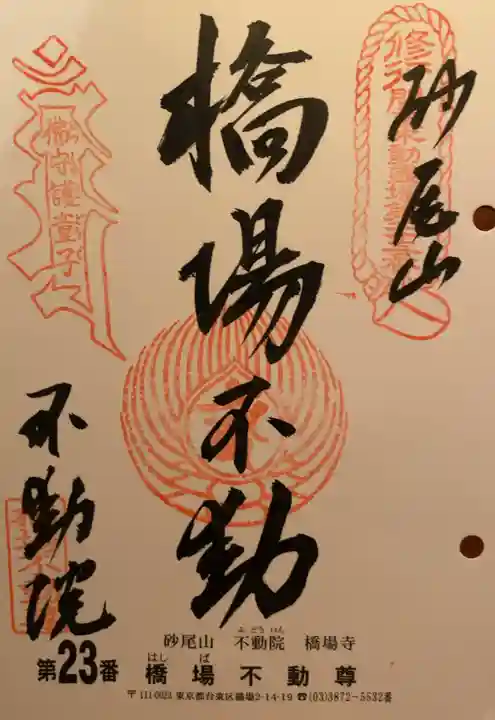 砂尾山
橋場不動
不動院
備守護童子
砂尾山 不動院 橋場寺
ふどういん
第23番 橋場不動尊
はしば
〒111-0023 東京都台東区橋場2-14-19 ☎(03)3872-5532番